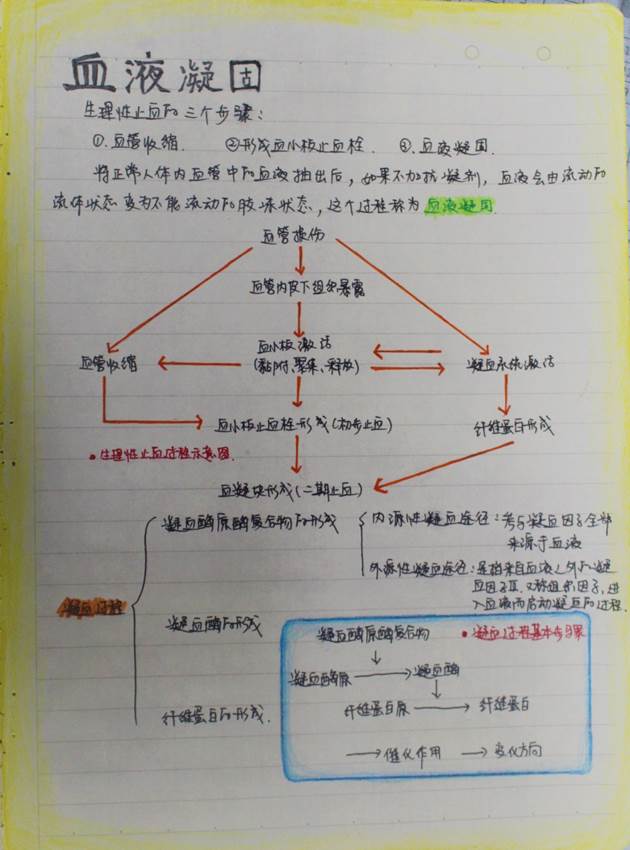 血液凝固
生理性止血的三个步骤：
①.血管收缩. ②形成血小板止血栓. ③.血液凝固.
将正常人体内血管中的血液抽出后，如果不加抗凝剂，血液会由流动的
流体状态变为不能流动的胶冻状态，这个过程称为血液凝固.
血管损伤
血管内皮下组织暴露
血管收缩 血小板激活 凝血系统激活
(黏附、聚集、释放)
血小板止血栓形成(初步止血) 纤维蛋白形成
•生理性止血过程示意图.
血凝块形成(二期止血)
凝血酶原酶复合物的形成 内源性凝血途径：参与凝血因子全部
来源于血液
外源性凝血途径：是指来自血液之外的凝
血因子Ⅲ,又称组织因子,进
入血液而启动凝血的过程.
凝血过程
凝血酶的形成
凝血酶原酶复合物 •凝血过程基本步骤
凝血酶原 凝血酶
纤维蛋白的形成.
纤维蛋白原 纤维蛋白
催化作用 变化方向